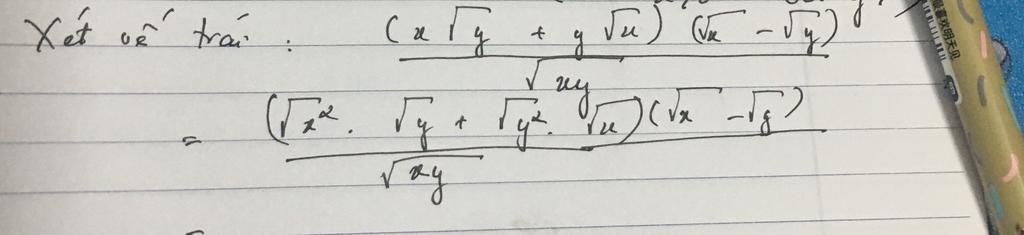 Xét vế trái : (x√y + y√x) (√x - √y)
√xy
= (√x². √y + √y². √x)(√x - √y)
√xy